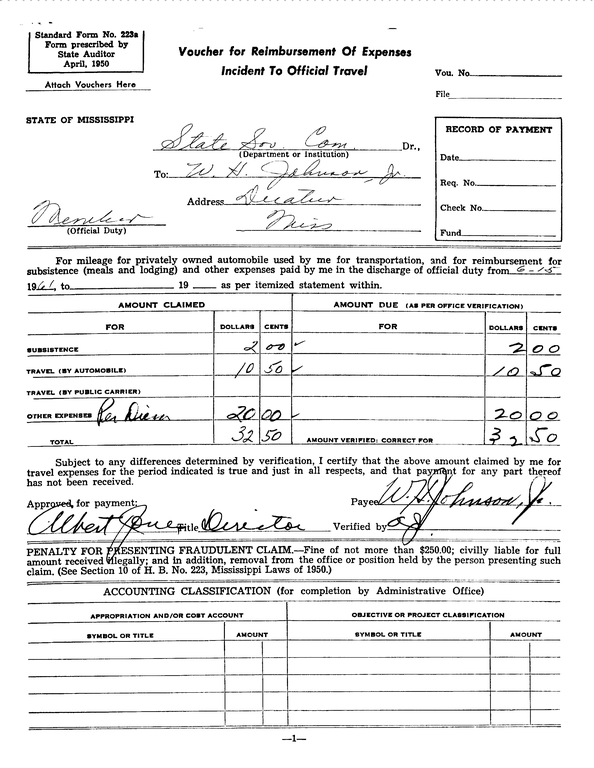 Standard Form No. 223a
Form prescribed by
State Auditor
April, 1950
Attach Vouchers Here
Voucher for Reimbursement Of Expenses
Incident To Official Travel
Vou. No.
File
STATE OF MISSISSIPPI
State Sov. Com. Dr.,
(Department or Institution)
To: W. H. Johnson, Jr.
Address Decatur
Miss
Member
(Official Duty)
RECORD OF PAYMENT
Date
Req. No.
Check No.
Fund
For mileage for privately owned automobile used by me for transportation, and for reimbursement for
subsistence (meals and lodging) and other expenses paid by me in the discharge of official duty from 6-15
1961, to 19 as per itemized statement within.
AMOUNT CLAIMED AMOUNT DUE (AS PER OFFICE VERIFICATION)
FOR DOLLARS CENTS FOR DOLLARS CENTS
SUBSISTENCE 2 00 ✓ 2 00
TRAVEL (BY AUTOMOBILE) 10 50 ✓ 10 50
TRAVEL (BY PUBLIC CARRIER)
OTHER EXPENSES Per Diem 20 00 ✓ 20 00
TOTAL 32 50 AMOUNT VERIFIED: CORRECT FOR 32 50
Subject to any differences determined by verification, I certify that the above amount claimed by me for
travel expenses for the period indicated is true and just in all respects, and that payment for any part thereof
has not been received.
Approved, for payment: Payee W. H. Johnson, Jr.
Albert Jones Title Director Verified by
PENALTY FOR PRESENTING FRAUDULENT CLAIM.—Fine of not more than $250.00; civilly liable for full
amount received illegally; and in addition, removal from the office or position held by the person presenting such
claim. (See Section 10 of H. B. No. 223, Mississippi Laws of 1950.)
ACCOUNTING CLASSIFICATION (for completion by Administrative Office)
APPROPRIATION AND/OR COST ACCOUNT OBJECTIVE OR PROJECT CLASSIFICATION
SYMBOL OR TITLE AMOUNT SYMBOL OR TITLE AMOUNT
—1—